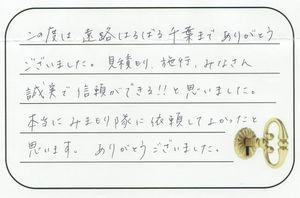 この度は、遠路はるばる千葉まで ありがとう
ございました。見積もり、施行、みなさん
誠実で信頼ができる!!と思いました。
本当に みまもり隊に依頼してよかったと
思います。 ありがとうございました。